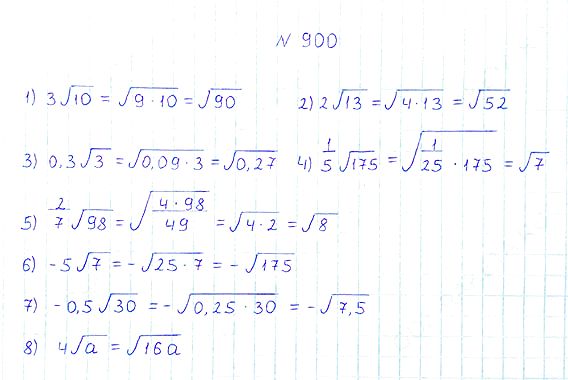 N 900
1) 3√10 = √(9·10) = √90 2) 2√13 = √(4·13) = √52
3) 0,3√3 = √(0,09·3) = √0,27 4) 1/5√175 = √(1/25·175) = √7
5) 2/7√98 = √(4·98/49) = √(4·2) = √8
6) -5√7 = -√(25·7) = -√175
7) -0,5√30 = -√(0,25·30) = -√7,5
8) 4√a = √16a